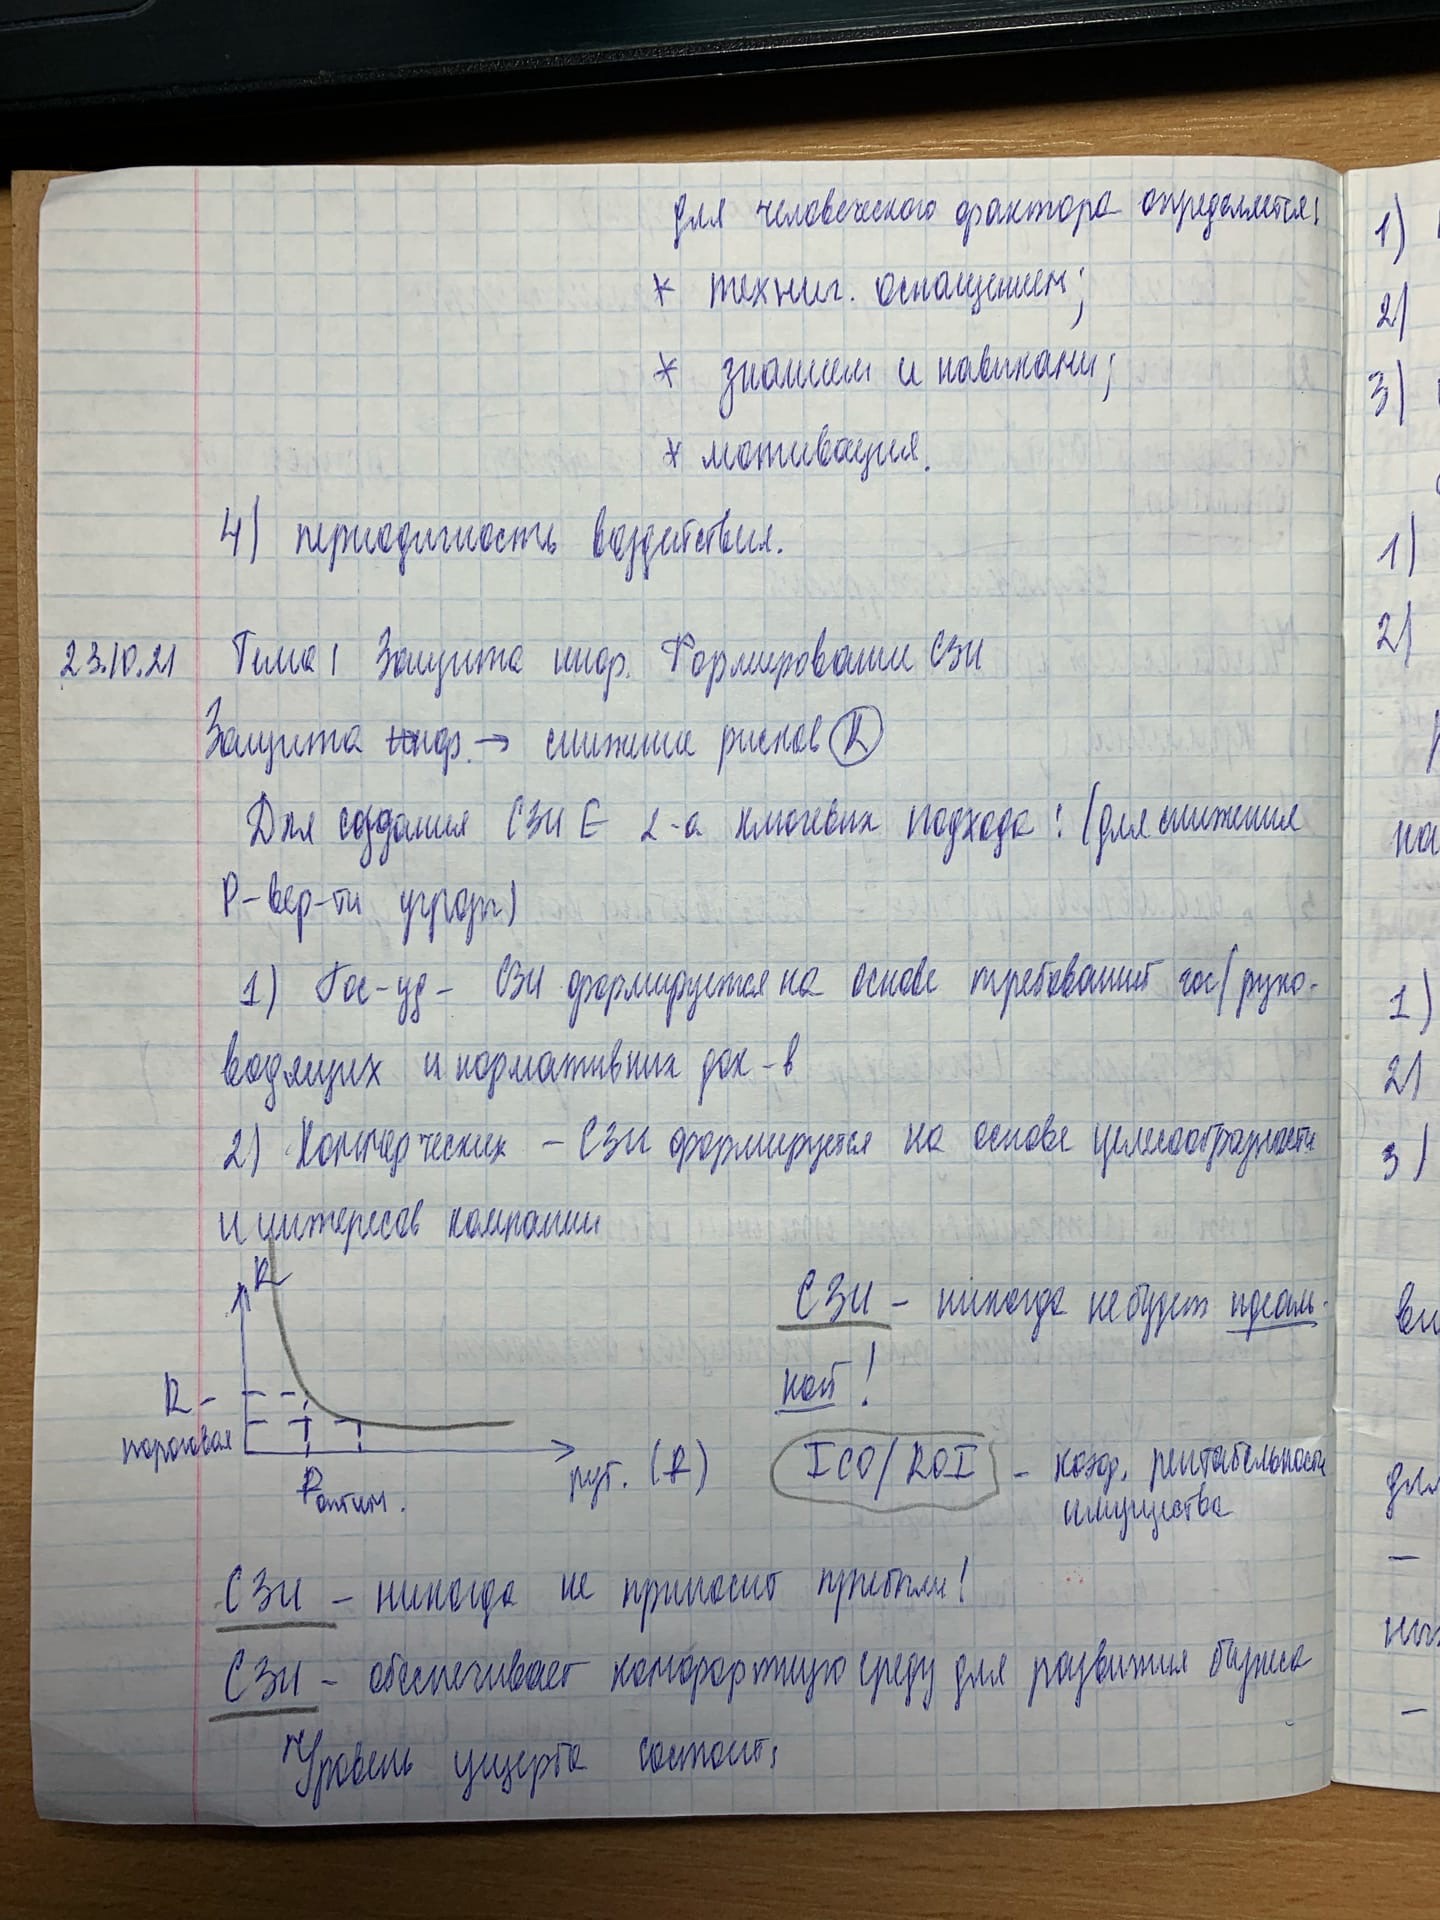 для человеческого фактора определяется:
* технич. оснащением;
* знанием и навыками;
* мотивация.
4) периодичность воздействия.
23.10.21 Тема: Защита инф. Формирование СЗИ
Защита инф. → снижение рисков R
Для создания СЗИ Е 2-а ключевых подхода: (для снижения
P-вер-ти угрозы)
1) Гос-уд - СЗИ формируется на основе требований гос/руко-
водящих и нормативных док-в
2) Коммерческих - СЗИ формируется на основе целесообразности
и интересов компании
R
R -
пороговая
Pоптим.
руб. (R)
СЗИ - никогда не будет идеаль-
ной!
ICO/ROI - коэф. рентабельности
имущества
СЗИ - никогда не приносит прибыли!
СЗИ - обеспечивает комфортную среду для развития бизнеса
Уровень ущерба состоит:
1)
2)
3)
1)
2)
на
1)
2)
3)